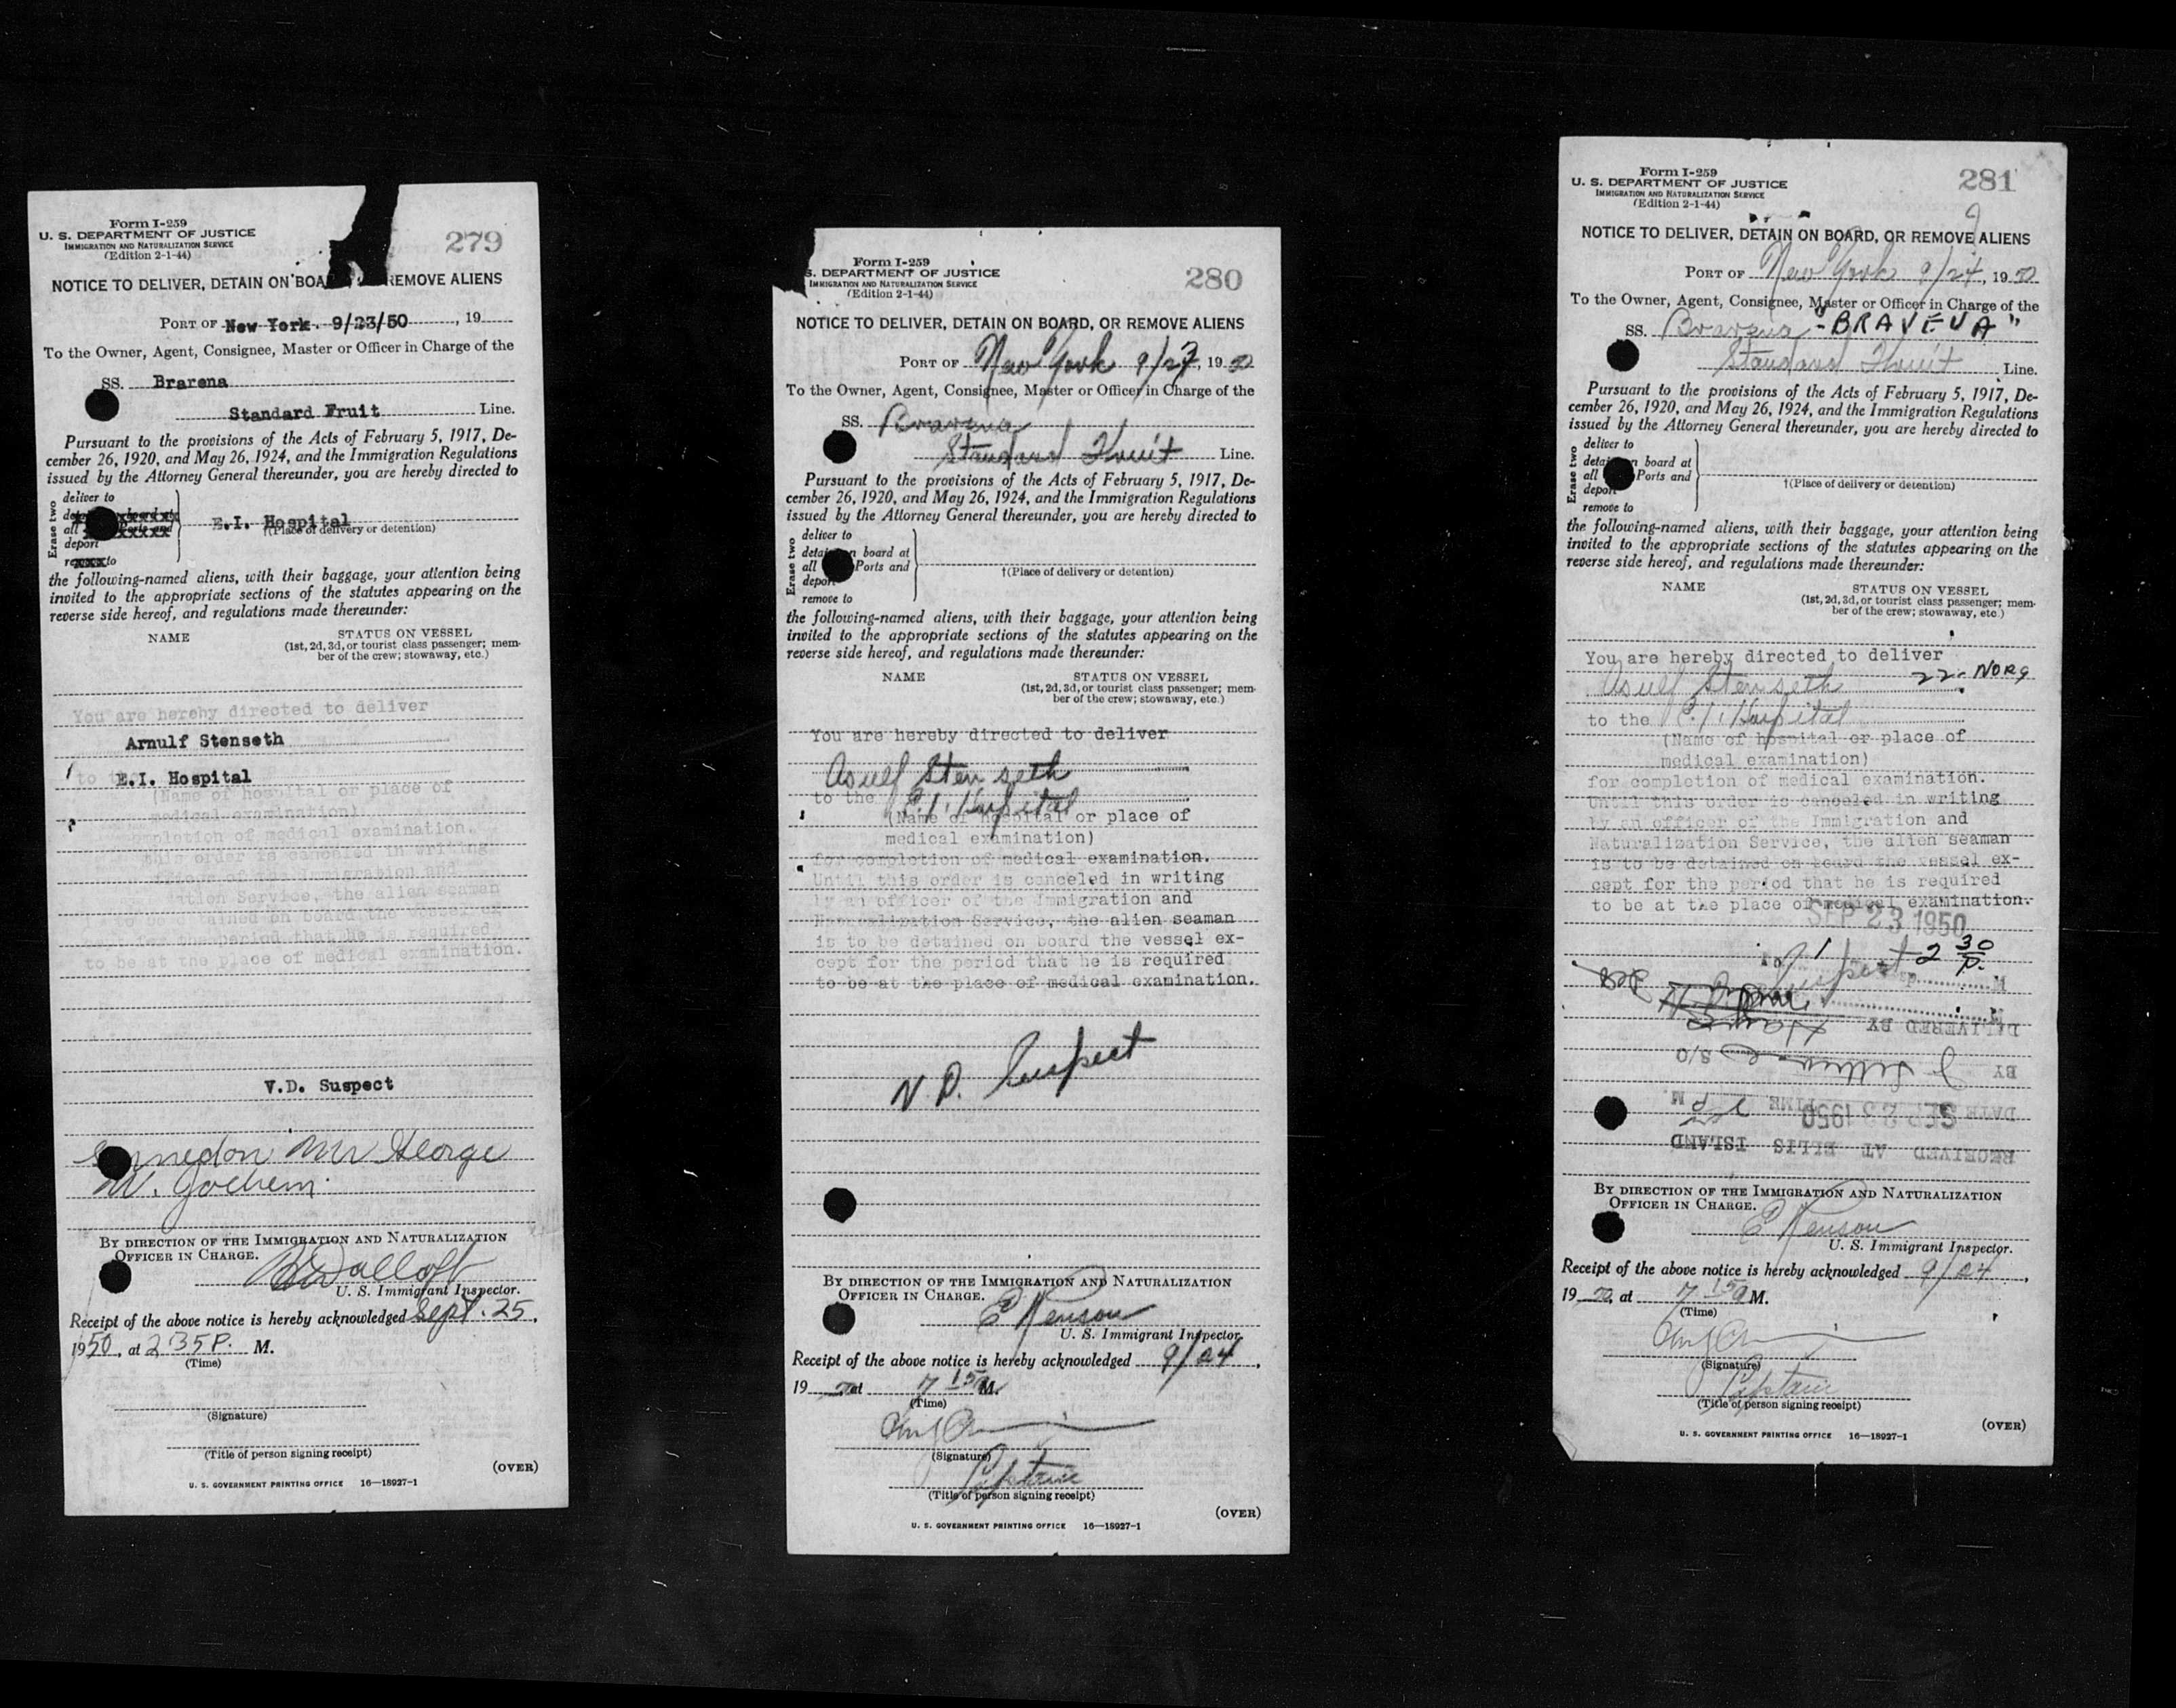 Form I-259
U. S. DEPARTMENT OF JUSTICE
IMMIGRATION AND NATURALIZATION SERVICE
(Edition 2-1-44)
279
NOTICE TO DELIVER, DETAIN ON BOA REMOVE ALIENS
PORT OF New York. 9/23/50, 19
To the Owner, Agent, Consignee, Master or Officer in Charge of the
SS. Brarena
Standard Fruit Line.
Pursuant to the provisions of the Acts of February 5, 1917, De-
cember 26, 1920, and May 26, 1924, and the Immigration Regulations
issued by the Attorney General thereunder, you are hereby directed to
Erase two
deliver to
all
deport
to
E.I. Hospital
†(Place of delivery or detention)
the following-named aliens, with their baggage, your attention being
invited to the appropriate sections of the statutes appearing on the
reverse side hereof, and regulations made thereunder:
NAME
STATUS ON VESSEL
(1st, 2d, 3d, or tourist class passenger; mem-
ber of the crew; stowaway, etc.)
You are hereby directed to deliver
Arnulf Stenseth
to the E.I. Hospital
(Name of hospital or place of
medical examination)
completion of medical examination.
this order is canceled in writing
officer of the Immigration and
ation Service, the alien seaman
to be detained on board the vessel ex
for the period that he is required
to be at the place of medical examination.
V.D. Suspect
Mr George
W. Jochem
BY DIRECTION OF THE IMMIGRATION AND NATURALIZATION
OFFICER IN CHARGE.
U. S. Immigrant Inspector.
Receipt of the above notice is hereby acknowledged Sept. 25,
1950, at 2 35 P. M.
(Time)
(Signature)
(Title of person signing receipt)
(OVER)
U. S. GOVERNMENT PRINTING OFFICE 16—18927-1
Form I-259
S. DEPARTMENT OF JUSTICE
IMMIGRATION AND NATURALIZATION SERVICE
(Edition 2-1-44)
280
NOTICE TO DELIVER, DETAIN ON BOARD, OR REMOVE ALIENS
PORT OF New York 9/23, 1950
To the Owner, Agent, Consignee, Master or Officer in Charge of the
SS. Brarena
Standard Fruit Line.
Pursuant to the provisions of the Acts of February 5, 1917, De-
cember 26, 1920, and May 26, 1924, and the Immigration Regulations
issued by the Attorney General thereunder, you are hereby directed to
Erase two
deliver to
detain on board at
all Ports and
deport
remove to
†(Place of delivery or detention)
the following-named aliens, with their baggage, your attention being
invited to the appropriate sections of the statutes appearing on the
reverse side hereof, and regulations made thereunder:
NAME
STATUS ON VESSEL
(1st, 2d, 3d, or tourist class passenger; mem-
ber of the crew; stowaway, etc.)
You are hereby directed to deliver
Asulf Stenseth
to the E. I. Hospital
(Name of hospital or place of
medical examination)
for completion of medical examination.
Until this order is canceled in writing
by an officer of the Immigration and
Naturalization Service, the alien seaman
is to be detained on board the vessel ex-
cept for the period that he is required
to be at the place of medical examination.
V. D. Suspect
BY DIRECTION OF THE IMMIGRATION AND NATURALIZATION
OFFICER IN CHARGE.
E Kenson
U. S. Immigrant Inspector.
Receipt of the above notice is hereby acknowledged 9/24,
1950 at 7 15a M.
(Time)
(Signature)
Captain
(Title of person signing receipt)
(OVER)
U. S. GOVERNMENT PRINTING OFFICE 16—18927-1
Form I-259
U. S. DEPARTMENT OF JUSTICE
IMMIGRATION AND NATURALIZATION SERVICE
(Edition 2-1-44)
281
NOTICE TO DELIVER, DETAIN ON BOARD, OR REMOVE ALIENS
PORT OF New York 9/24, 1950
To the Owner, Agent, Consignee, Master or Officer in Charge of the
SS. Brarena "BRAVENA"
Standard Fruit Line.
Pursuant to the provisions of the Acts of February 5, 1917, De-
cember 26, 1920, and May 26, 1924, and the Immigration Regulations
issued by the Attorney General thereunder, you are hereby directed to
Erase two
deliver to
detain on board at
all Ports and
deport
remove to
†(Place of delivery or detention)
the following-named aliens, with their baggage, your attention being
invited to the appropriate sections of the statutes appearing on the
reverse side hereof, and regulations made thereunder:
NAME
STATUS ON VESSEL
(1st, 2d, 3d, or tourist class passenger; mem-
ber of the crew; stowaway, etc.)
You are hereby directed to deliver
Asulf Stenseth 22- NORG
to the E. I. Hospital
(Name of hospital or place of
medical examination)
for completion of medical examination.
Until this order is canceled in writing
by an officer of the Immigration and
Naturalization Service, the alien seaman
is to be detained on board the vessel ex-
cept for the period that he is required
to be at the place of medical examination.
SEP 23 1950
2 30 P.
Suspect
DELIVERED BY
BY S/O
DATE SEP 23 1950 TIME P M.
RECEIVED AT ELLIS ISLAND
BY DIRECTION OF THE IMMIGRATION AND NATURALIZATION
OFFICER IN CHARGE.
E Kenson
U. S. Immigrant Inspector.
Receipt of the above notice is hereby acknowledged 9/24,
1950, at 7 15a M.
(Time)
(Signature)
Captain
(Title of person signing receipt)
(OVER)
U. S. GOVERNMENT PRINTING OFFICE 16—18927-1